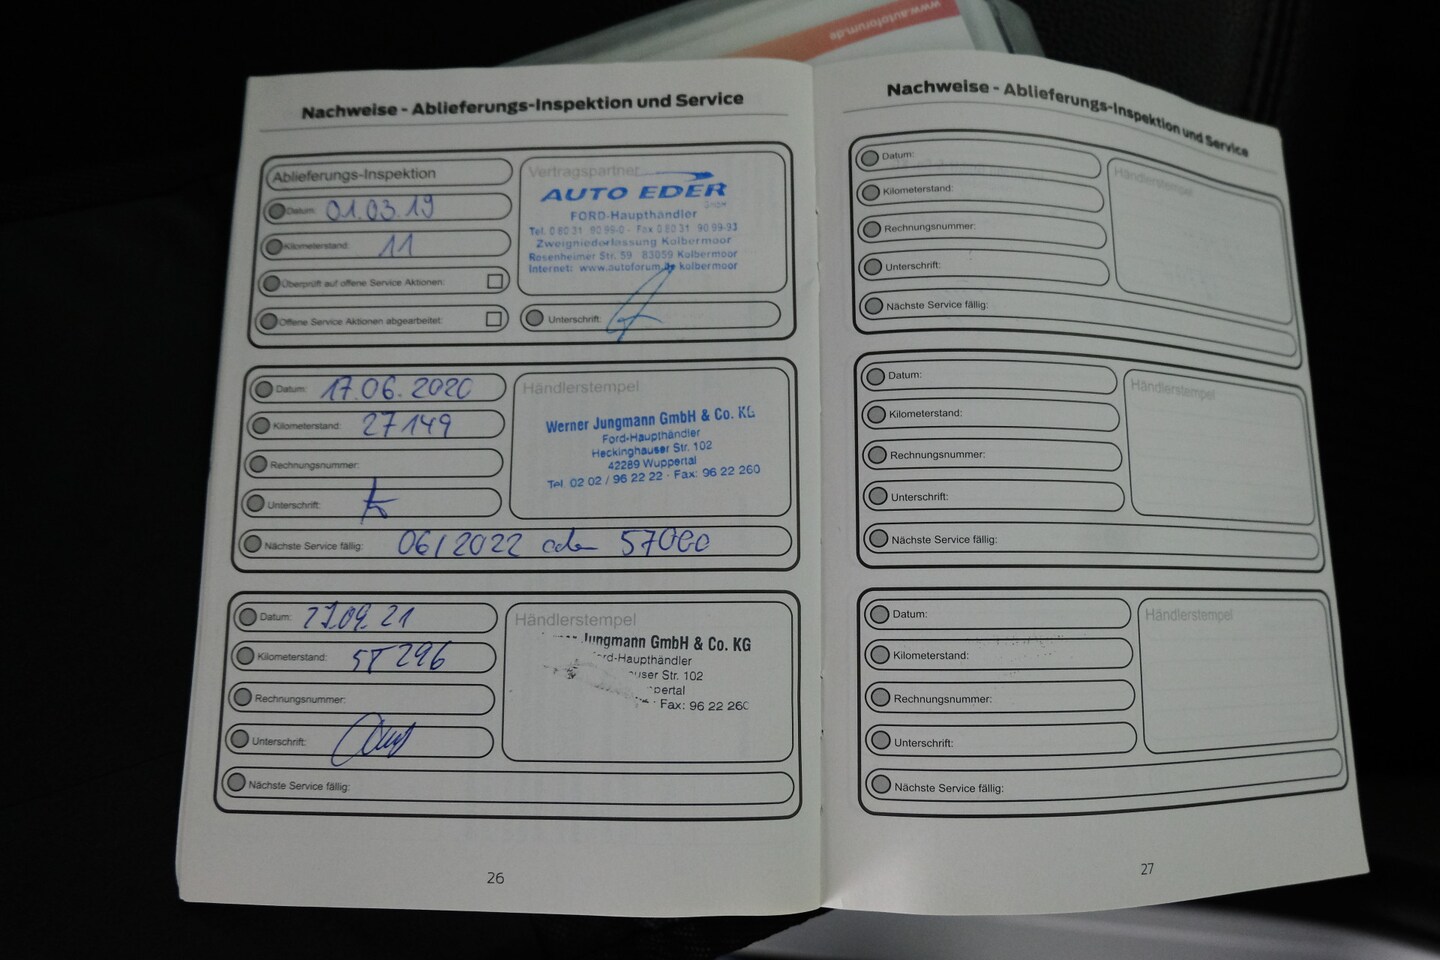 www.autoforum.de
Nachweise - Ablieferungs-Inspektion und Service
Ablieferungs-Inspektion
Datum: 01.03.19
Kilometerstand: 11
Überprüft auf offene Service Aktionen:
Offene Service Aktionen abgearbeitet:
Vertragspartner
AUTO EDER
GmbH
FORD-Haupthändler
Tel. 0 80 31 90 99-0 - Fax 0 80 31 90 99-93
Zweigniederlassung Kolbermoor
Rosenheimer Str. 59 83059 Kolbermoor
Internet: www.autoforum.de kolbermoor
Unterschrift:
Datum: 17.06.2020
Kilometerstand: 27149
Rechnungsnummer:
Unterschrift:
Nächste Service fällig: 06/2022 oder 57000
Händlerstempel
Werner Jungmann GmbH & Co. KG
Ford-Haupthändler
Heckinghauser Str. 102
42289 Wuppertal
Tel. 02 02 / 96 22 22 - Fax: 96 22 260
Datum: 27.09.21
Kilometerstand: 57296
Rechnungsnummer:
Unterschrift:
Nächste Service fällig:
Händlerstempel
Jungmann GmbH & Co. KG
ord-Haupthändler
user Str. 102
pertal
Fax: 96 22 260
26
Nachweise - Ablieferungs-Inspektion und Service
Datum:
Kilometerstand:
Rechnungsnummer:
Unterschrift:
Nächste Service fällig:
Händlerstempel
Datum:
Kilometerstand:
Rechnungsnummer:
Unterschrift:
Nächste Service fällig:
Händlerstempel
Datum:
Kilometerstand:
Rechnungsnummer:
Unterschrift:
Nächste Service fällig:
Händlerstempel
27